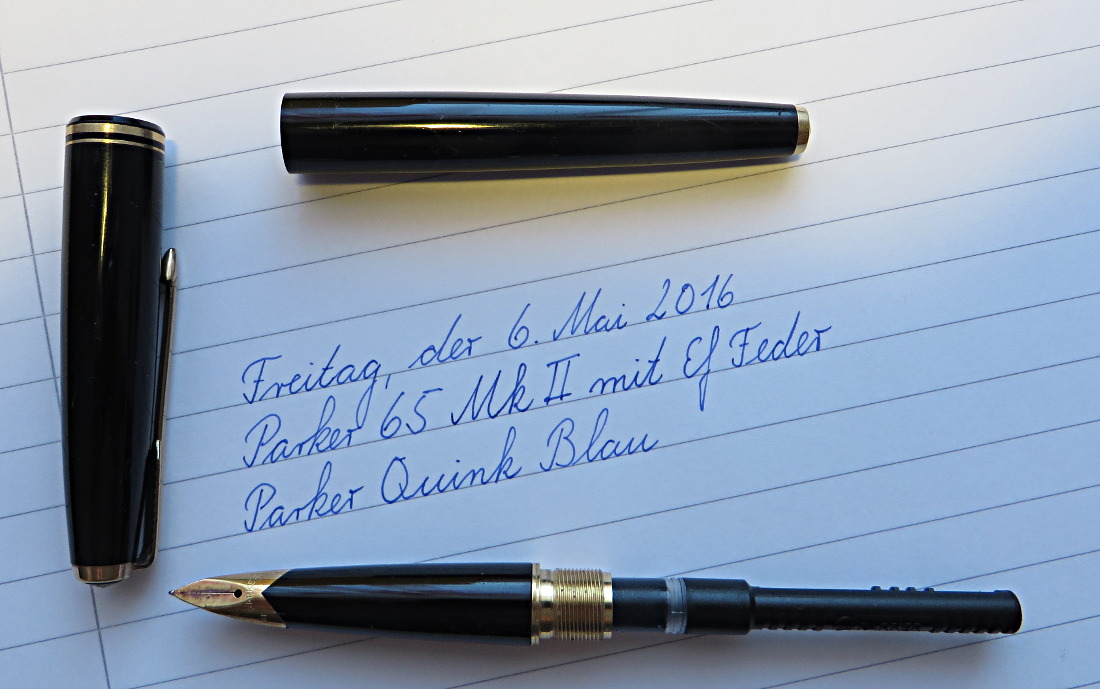 Freitag, der 6. Mai 2016
Parker 65 Mk II mit Ef Feder
Parker Quink Blau